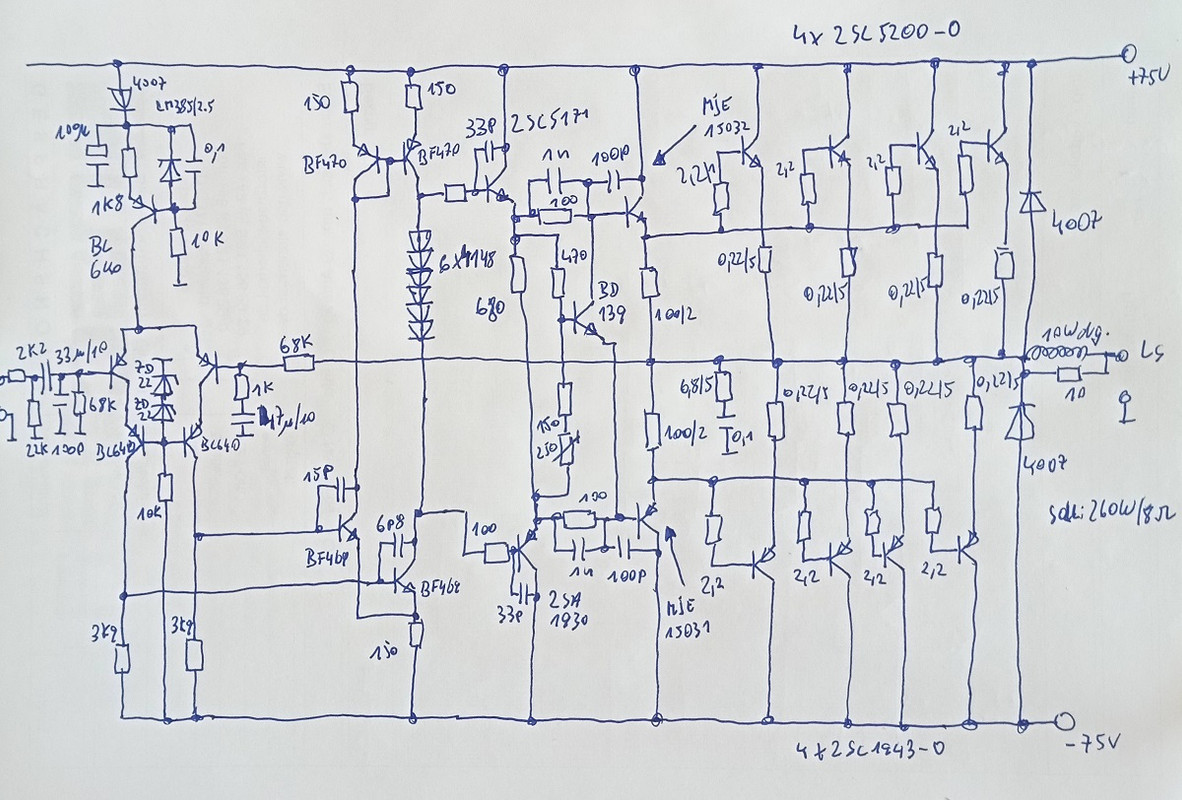 4x 2SC5200-O
+75V
4007
LM385/2.5
109µ
0,1
1K8
BC
640
10K
150
150
BF470
BF470
33P
2SC5171
1n
100P
100
MJE
15032
2,2/1
2,2
2,2
2,2
4007
6x4148
680
470
BD
139
100/2
0,22/5
0,22/5
0,22/5
0,22/5
10Wdg.
LS
10
2K2
33µ/10
68K
22K
100P
BC640
ZD
22
ZD
22
BC640
68K
1K
47µ/10
10K
150
250
100/2
6,8/5
0,1
0,22/5
0,22/5
0,22/5
0,22/5
4007
15P
BF469
6P8
BF469
100
100
1n
100P
33P
2SA
1930
MJE
15031
2,2
2,2
2,2
2,2
260W/8Ω
3K9
3K9
150
4x2SC1943-O
-75V